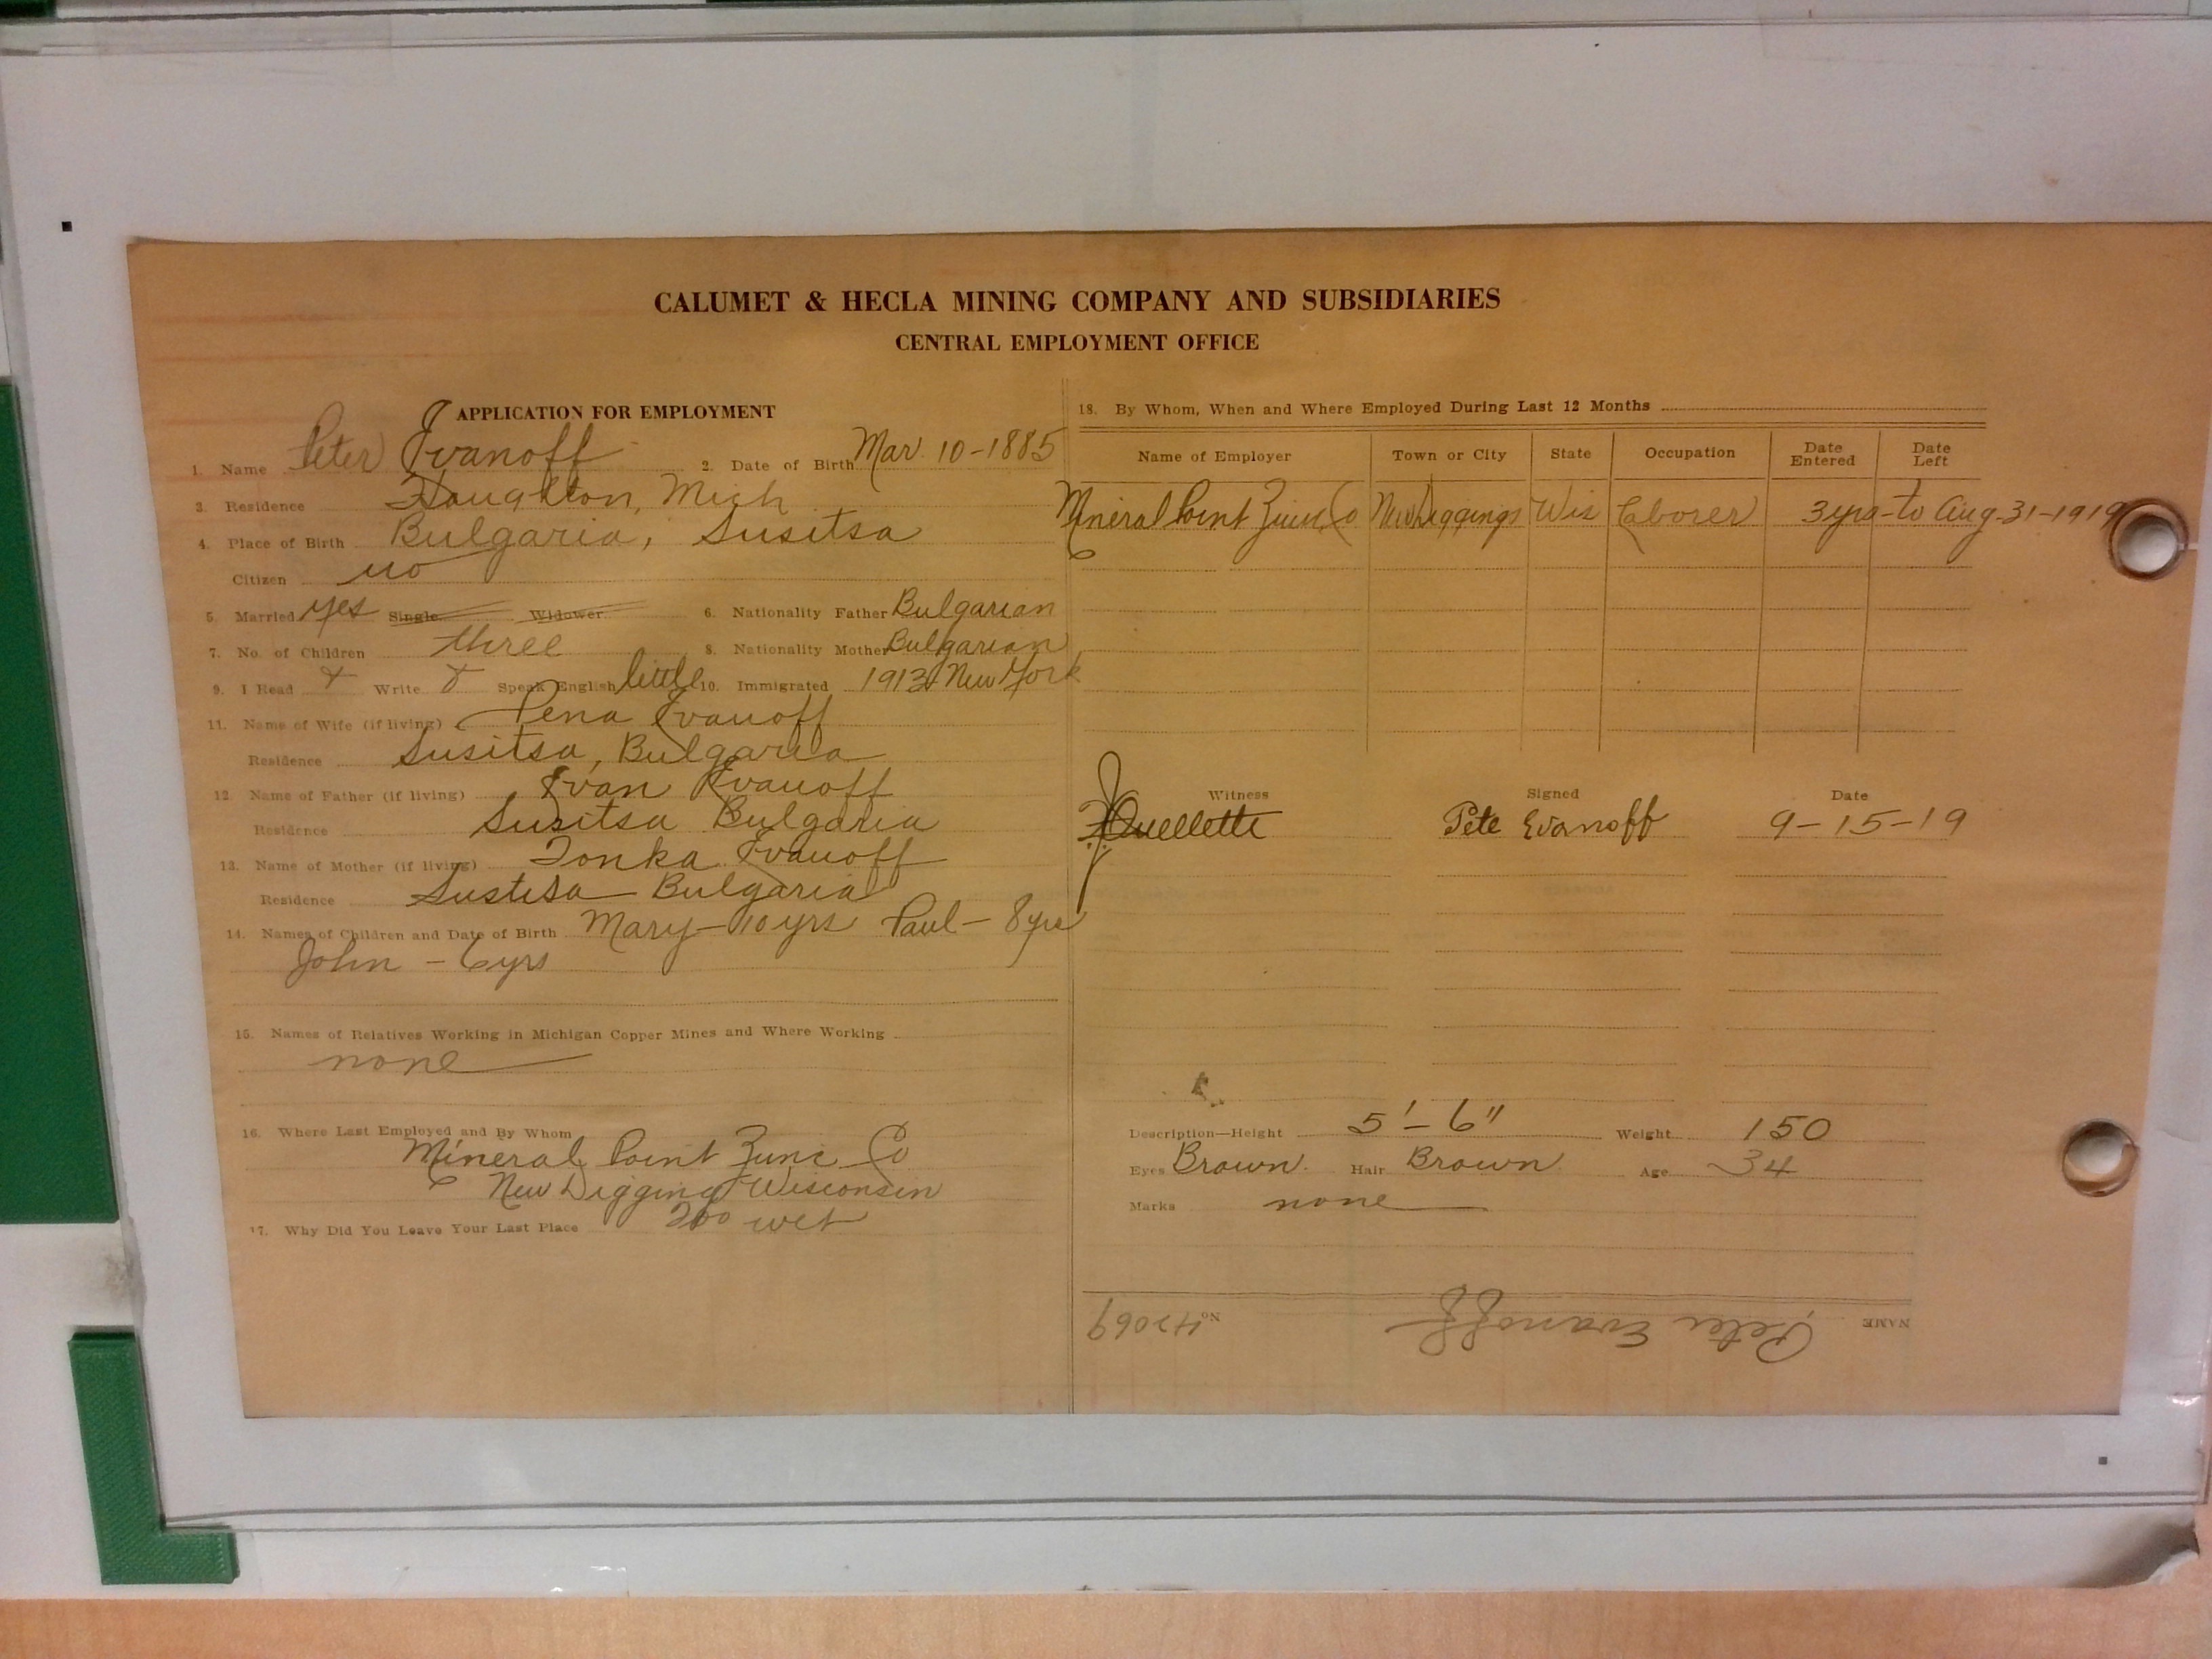 CALUMET & HECLA MINING COMPANY AND SUBSIDIARIES
CENTRAL EMPLOYMENT OFFICE
APPLICATION FOR EMPLOYMENT
1. Name Peter Ivanoff 2. Date of Birth Mar. 10-1885
3. Residence Houghton, Mich
4. Place of Birth Bulgaria, Susitsa
Citizen no
5. Married yes Single Widower 6. Nationality Father Bulgarian
7. No. of Children three 8. Nationality Mother Bulgarian
9. I Read Write Speak English little 10. Immigrated 1913 New York
11. Name of Wife (if living) Pena Ivanoff
Residence Susitsa, Bulgaria
12. Name of Father (if living) Ivan Ivanoff
Residence Susitsa Bulgaria
13. Name of Mother (if living) Tonka Ivanoff
Residence Sustisa Bulgaria
14. Names of Children and Date of Birth Mary - 10 yrs Paul - 8 yrs
John - 6 yrs
15. Names of Relatives Working in Michigan Copper Mines and Where Working
none
16. Where Last Employed and By Whom
Mineral Point Zinc Co
New Digging Wisconsin
17. Why Did You Leave Your Last Place Too wet
18. By Whom, When and Where Employed During Last 12 Months
Name of Employer Town or City State Occupation Date Entered Date Left
Mineral Point Zinc Co New Diggings Wis Laborer 3 yrs - to Aug-31-1919
Witness Signed Date
Ouellette Pete Evanoff 9-15-19
Description—Height 5'-6" Weight 150
Eyes Brown Hair Brown Age 34
Marks none
NAME Peter Evanoff No 42069